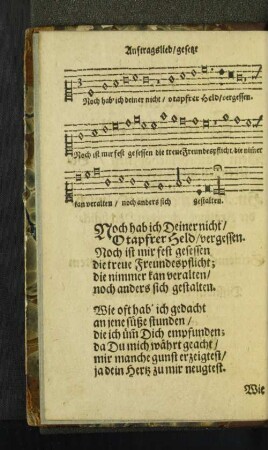 Auftragslied/gesetze
Noch hab' ich deiner nicht / o tapfrer Held/vergessen.
Noch ist mir fest gesessen die treue Freundespflicht, die nimer
kan veralten / noch anders sich gestalten.
Noch hab ich Deiner nicht/
O tapfrer Held/vergessen.
Noch ist mir fest gesessen
die treue Freundespflicht;
die nimmer kan veralten/
noch anders sich gestalten.
Wie oft hab' ich gedacht
an jene süße stunden/
die ich üm Dich empfunden;
da Du mich währt geacht/
mir manche gunst erzeigtest/
ja dein Hertz zu mir neugtest.
Wie